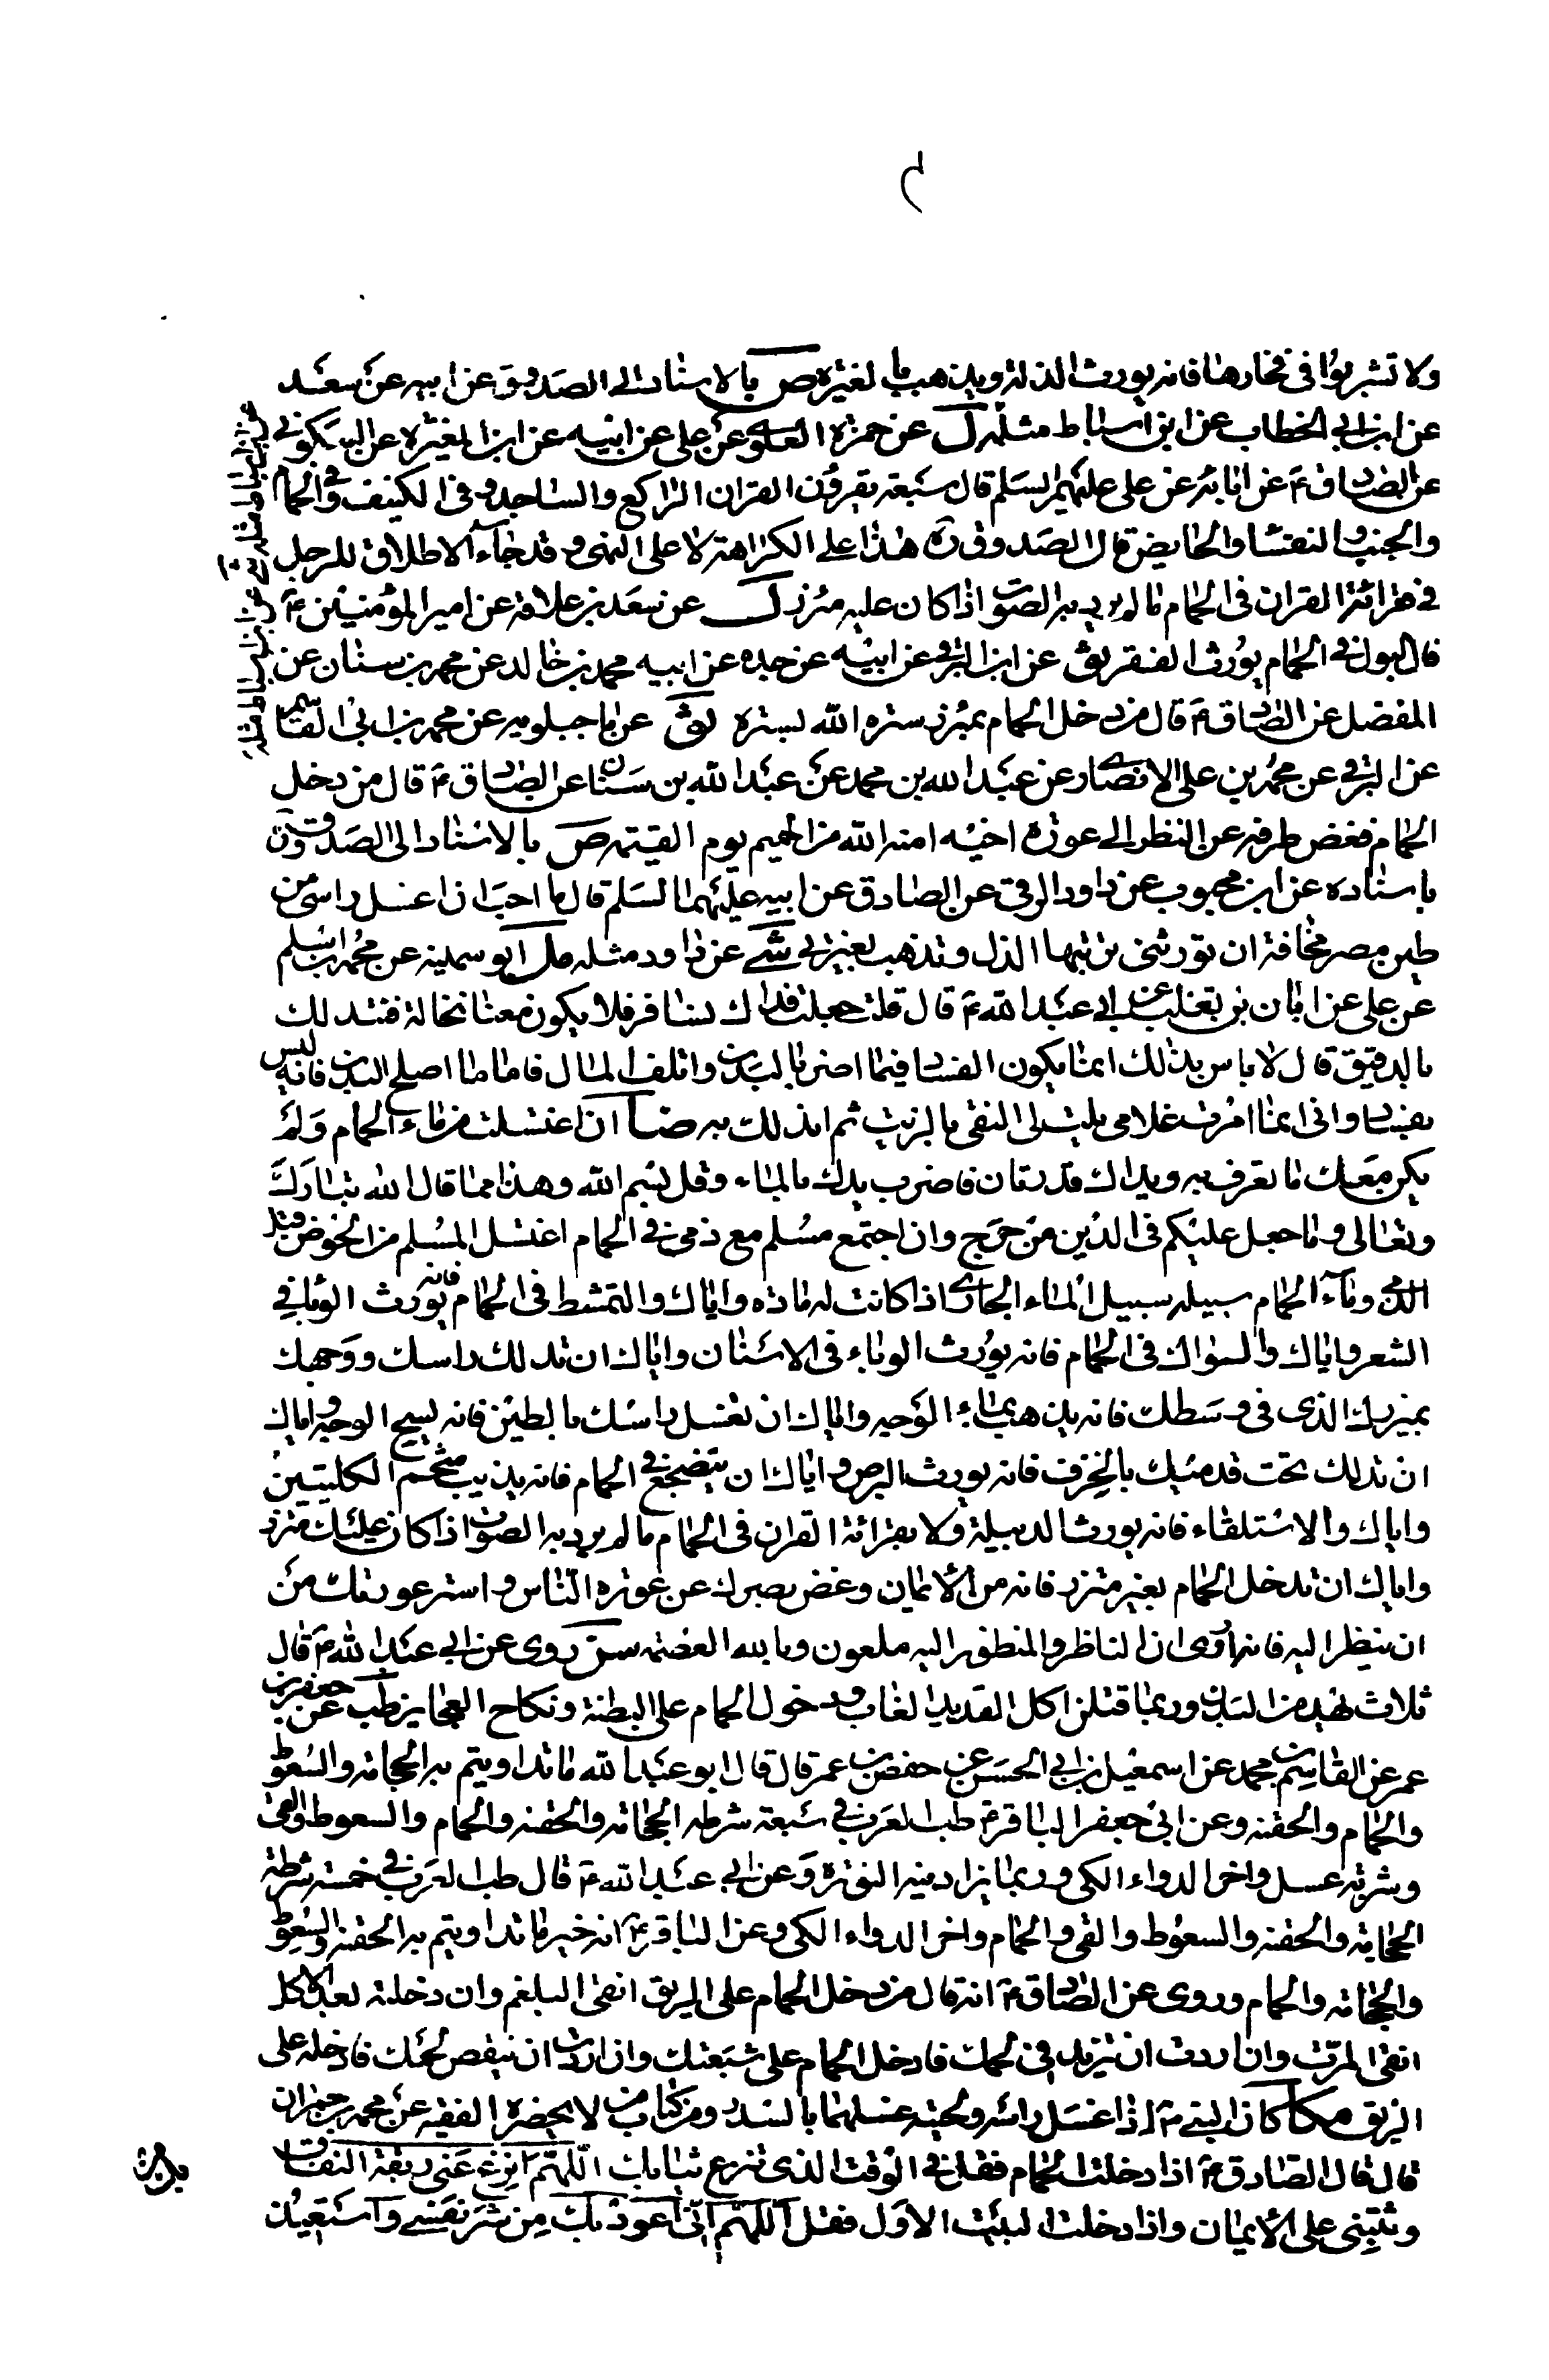 ولا تشربوا فى فخارها فانه يورث الذلة ويذهب بالغيرة ص بالاسناد الى الصدوق عن ابيه عن سعد
عن ابن ابى الخطاب عن ابن اسباط مثله ل عن حمزة العلوى عن على عن ابيه عن ابن المغيرة عن السكونى
عن الصادق ع عن ابائه عن على عليهم السلم قال سبعة لا يقرؤن القران الراكع والساجد وفى الكنيف وفى الحمام
والجنب والنفساء والحايض قال الصدوق ره هذا على الكراهة لا على النهى وقد جاء الاطلاق للرجل
فى قرائة القران فى الحمام ما لم يرد به الصوت اذا كان عليه مئزر ل عن سعد بن علاقة عن امير المؤمنين ع
قال البول فى الحمام يورث الفقر يق عن ابن البرقى عن ابيه عن جده عن ابيه محمد بن خالد عن محمد بن سنان عن
المفضل عن الصادق ع قال من دخل الحمام بمئزر ستره الله بستره ثو عن ماجيلويه عن محمد بن ابى القاسم
عن البرقى عن محمد بن على الانصارى عن عبد الله بن محمد عن عبد الله بن سنان عن الصادق ع قال من دخل
الحمام فغض طرفه عن النظر الى عورة اخيه امنه الله من الحميم يوم القيمة ص بالاسناد الى الصدوق
باسناده عن ابن محبوب عن داود الرقى عن الصادق عن ابيه عليهما السلم قال ما احب ان اغسل راسى من
طين مصر مخافة ان تورثنى تربتها الذل وتذهب بغيرتى شى عن داود مثله مل ابو سمينة عن محمد بن اسلم
عن على عن ابان بن تغلب عن ابى عبد الله ع قال قلت جعلت فداك نسافر فلا يكون معنا نخالة فنتدلك
بالدقيق قال لا باس بذلك انما يكون الفساد فيما اضر بالبدن واتلف المال فاما ما اصلح البدن فانه ليس
بفساد وانى انما امرت غلامى يلت لى النقى بالزيت ثم اتدلك به ضا ان اغتسلت من ماء الحمام ولم
يكن معك ما تغرف به ويداك قذرتان فاضرب يدك بالماء وقل بسم الله وهذا مما قال الله تبارك
وتعالى وما جعل عليكم فى الدين من حرج وان اجتمع مسلم مع ذمى فى الحمام اغتسل المسلم من الحوض قبل
الذمى وماء الحمام سبيله سبيل الماء الجارى اذا كانت له مادة واياك والتمشط فى الحمام فانه يورث الوباء فى
الشعر واياك والسواك فى الحمام فانه يورث الوباء فى الاسنان واياك ان تدلك راسك ووجهك
بميزرك الذى فى وسطك فانه يذهب بماء الوجه واياك ان تغسل راسك بالطين فانه يسمج الوجه واياك
ان تدلك تحت قدميك بالخزف فانه يورث البرص واياك ان تضجع فى الحمام فانه يذيب شحم الكليتين
واياك والاستلقاء فانه يورث الدبيلة ولا بقرائة القران فى الحمام ما لم يرد به الصوت اذا كان عليك مئزر
واياك ان تدخل الحمام بغير مئزر فانه من الايمان وغض بصرك عن عورة الناس واستر عورتك من
ان ينظر اليه فانه اروى ان الناظر والمنظور اليه ملعون وبالله العصمة سن روى عن ابى عبد الله ع قال
ثلاث يهدمن البدن وربما قتلن اكل القديد الغاب ودخول الحمام على البطنة ونكاح العجايز طب عن جعفر بن
عمر عن القاسم بن محمد عن اسمعيل بن ابى الحسن عن حفص بن عمر قال قال ابو عبد الله ما تداويتم به الحجامة والسعوط
والحمام والحقنه وعن ابى جعفر الباقر ع طب العرب فى سبعة شرطه الحجامة والحقنه والحمام والسعوط والقئ
وشربة عسل واخر الدواء الكى وربما يزاد فيه النورة وعن ابى عبد الله ع قال طب العرب فى خمسة شرطة
الحجامة والحقنه والسعوط والقئ والحمام واخر الدواء الكى وعن الباقر ع انه خير ما تداويتم به الحقنة والسعوط
والحجامة والحمام وروى عن الصادق ع انه قال من دخل الحمام على الريق انقى البلغم وان دخلته بعد الاكل
انقى المرة وان اردت ان تزيد فى لحمك فادخل الحمام على شبعتك وان اردت ان ينقص لحمك فادخله على
الريق مكا كان النبى ص اذا غسل راسه ولحيته غسلهما بالسدر ومن كتاب من لا يحضره الفقيه عن محمد بن حمران
قال قال الصادق ع اذا دخلت الحمام فقل فى الوقت الذى تنزع ثيابك اللهم انزع عنى ربقة النفاق
وثبتنى على الايمان واذا دخلت البيت الاول فقل اللهم انى اعوذ بك من شر نفسى واستعيذ